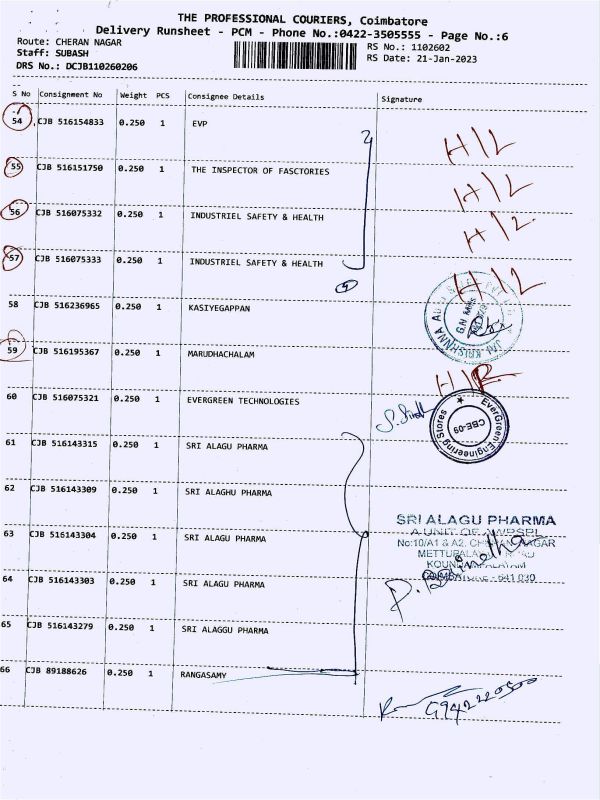 THE PROFESSIONAL COURIERS, Coimbatore
Delivery Runsheet - PCM - Phone No.:0422-3505555 - Page No.:6
Route: CHERAN NAGAR
RS No.: 1102602
Staff: SUBASH
RS Date: 21-Jan-2023
DRS No.: DCJB110260206
S No Consignment No Weight PCS Consignee Details Signature
54 CJB 516154833 0.250 1 EVP
55 CJB 516151750 0.250 1 THE INSPECTOR OF FASCTORIES
56 CJB 516075332 0.250 1 INDUSTRIEL SAFETY & HEALTH
57 CJB 516075333 0.250 1 INDUSTRIEL SAFETY & HEALTH
58 CJB 516236965 0.250 1 KASIYEGAPPAN
JAI KRISHNNA
59 CJB 516195367 0.250 1 MARUDHACHALAM
60 CJB 516075321 0.250 1 EVERGREEN TECHNOLOGIES
EverGreen Engineering Stores
CBE-09
61 CJB 516143315 0.250 1 SRI ALAGU PHARMA
62 CJB 516143309 0.250 1 SRI ALAGHU PHARMA
SRI ALAGU PHARMA
A UNIT OF
63 CJB 516143304 0.250 1 SRI ALAGU PHARMA
No:10/A1 & A2,
64 CJB 516143303 0.250 1 SRI ALAGU PHARMA
65 CJB 516143279 0.250 1 SRI ALAGGU PHARMA
66 CJB 89188626 0.250 1 RANGASAMY